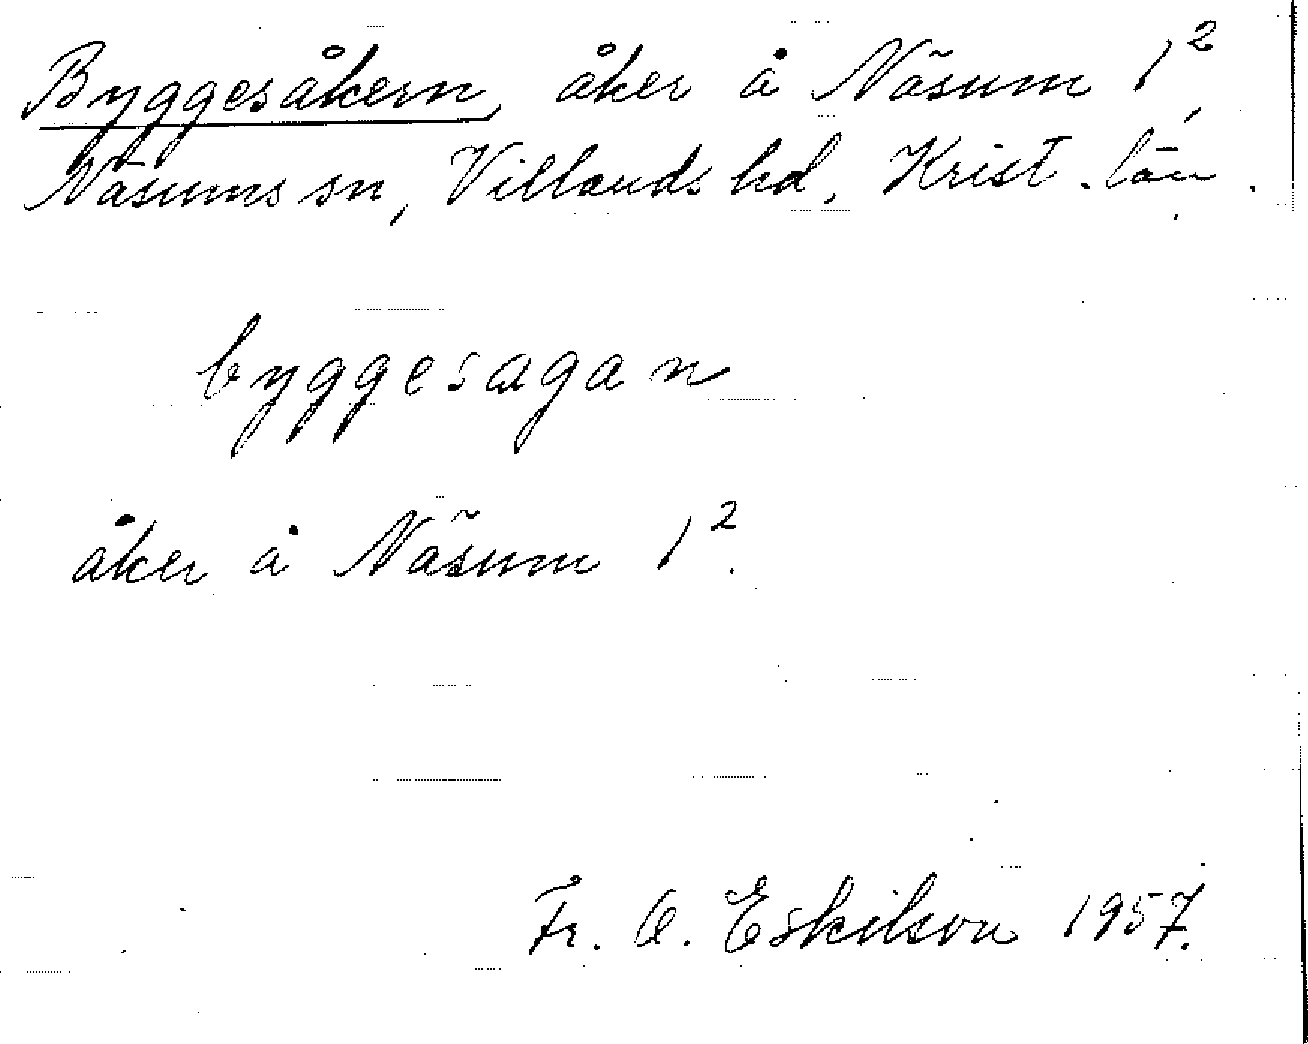 Byggesåkern, åker å Näsum 1²,
Näsums sn, Villands hd, Krist. län.
byggesagan
åker å Näsum 1².
Fr. A. Eskilson 1957.